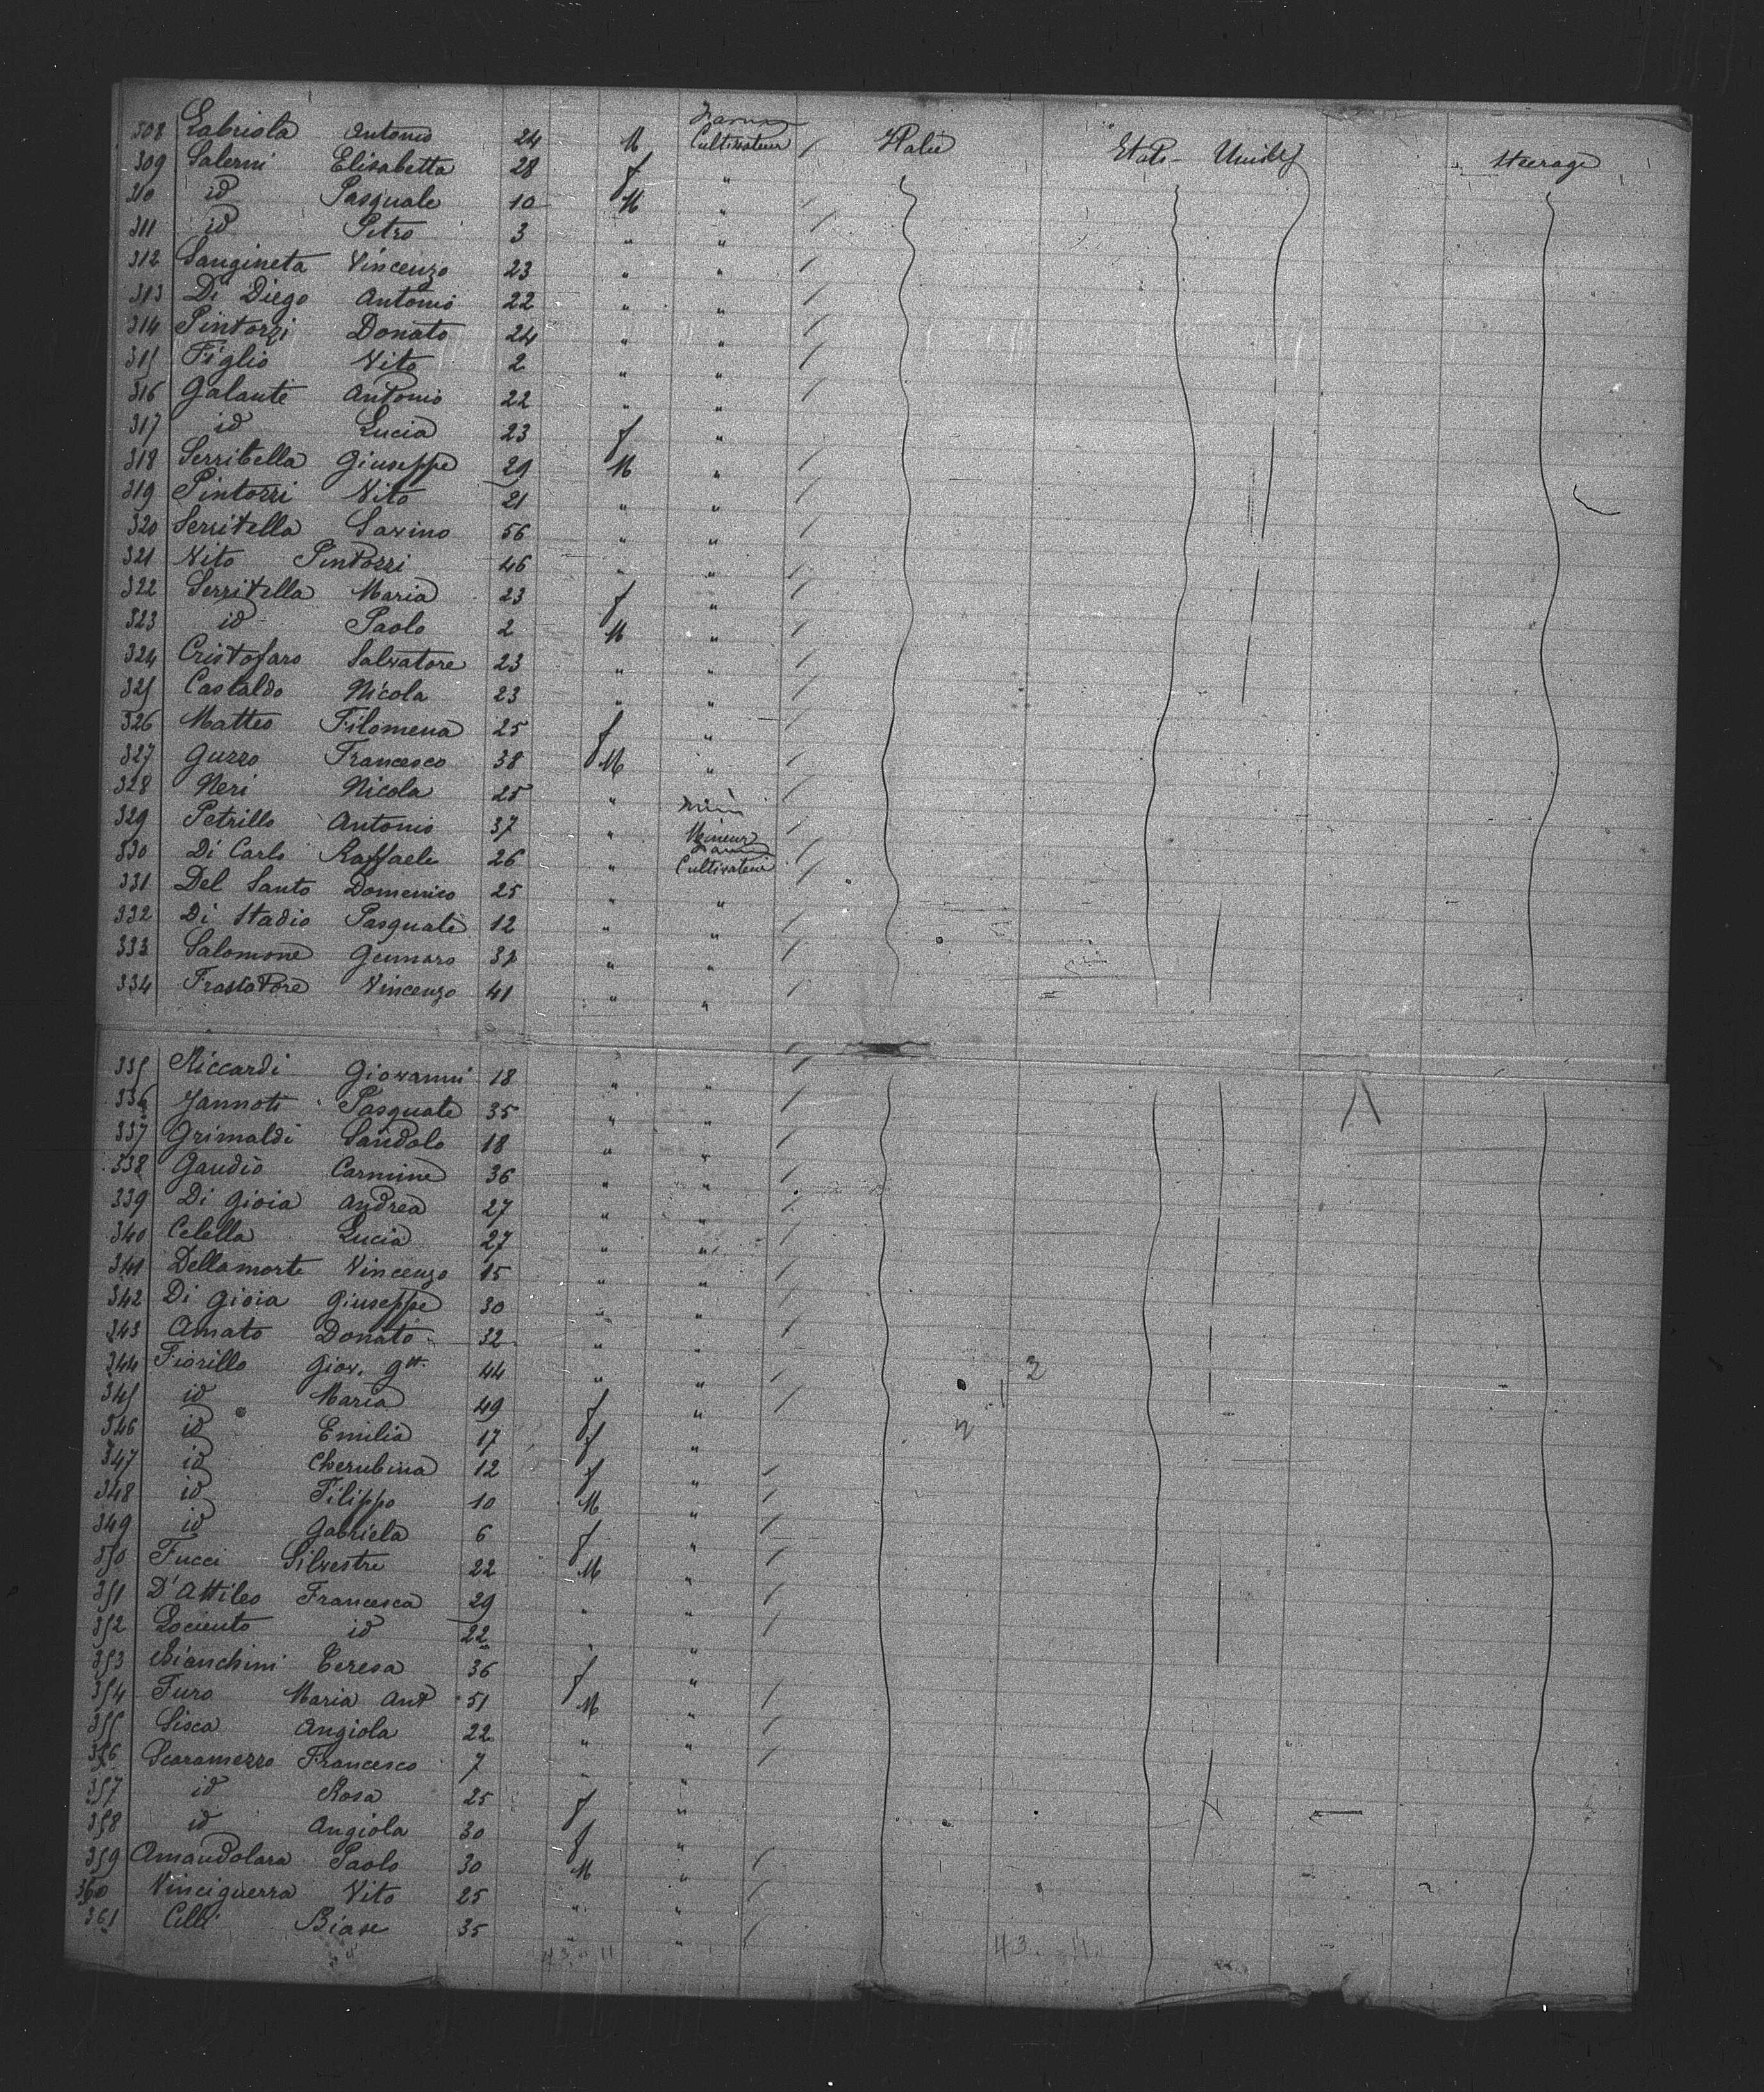 308 Labriola Antonio 24 M Cultivateur / Italie Etats-Unis Steerage
309 Salerni Elisabetta 28 f "
310 id Pasquale 10 M " /
311 id Petro 3 " " /
312 Sangineta Vincenzo 23 " " /
313 Di Diego Antonio 22 " " /
314 Pintozzi Donato 24 " " /
315 Figlio Vito 2 " " /
316 Galante Antonio 22 " " /
317 id Lucia 23 f " /
318 Serribella Giuseppe 29 M " /
319 Pintozzi Vito 21 " " /
320 Serritella Savino 56 " " /
321 Vito Pintozzi 46 " " /
322 Serritella Maria 23 f " /
323 id Paolo 2 M " /
324 Cristofaro Salvatore 23 " " /
325 Castaldo Nicola 23 " " /
326 Matteo Filomena 25 f " /
327 Guzzo Francesco 38 M " /
328 Neri Nicola 25 " /
329 Petrillo Antonio 37 " Mineur /
330 Di Carlo Raffaele 26 " Cultivateur /
331 Del Santo Domenico 25 " "
332 Di Stadio Pasquale 12 " " /
333 Salomone Gennaro 32 " " /
334 Vincenzo 41 " " /
335 Riccardi Giovanni 18 " " /
336 Jannoti Pasquale 35 " " /
337 Grimaldi Sandolo 18 " " /
338 Gaudio Carmine 36 " " /
339 Di Gioia Andrea 27 " " /
340 Celella Lucia 27 " " /
341 Dellamorte Vincenzo 15 " " /
342 Di Gioia Giuseppe 30 " " /
343 Amato Donato 32 " " /
344 Fiorillo Giov. Gtt. 44 " " /
345 id Maria 49 f " /
346 id Emilia 17 f "
347 id Cherubina 12 f " /
348 id Filippo 10 M " /
349 id Gabriela 6 f " /
350 Fucci Silvestre 22 M " /
351 D'Attileo Francesca 29 " " /
352 Lociento id 22 " " /
353 Bianchini Teresa 36 f "
354 Furo Maria Ant 51 M " /
355 Sisca Angiola 22 " " /
356 Scaramezzo Francesco 7 " " /
357 id Rosa 25 f "
358 id Angiola 30 f "
359 Amandolara Paolo 30 M " /
360 Vinciguerra Vito 25 " " /
361 Celli Biase 35 " " /
43 11 43 11